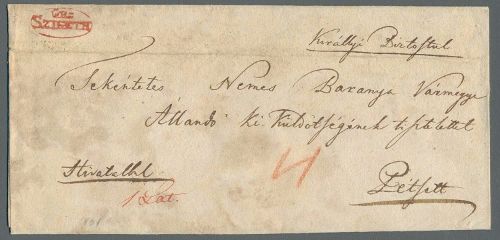 Gr:
SZIGETH
Királlyi Biztostul
Tekéntetes Nemes Baranya Vármegye
Állandó ki Küldötségének tisztelettel
Hivatalbl
1 Lat.
Pétsett